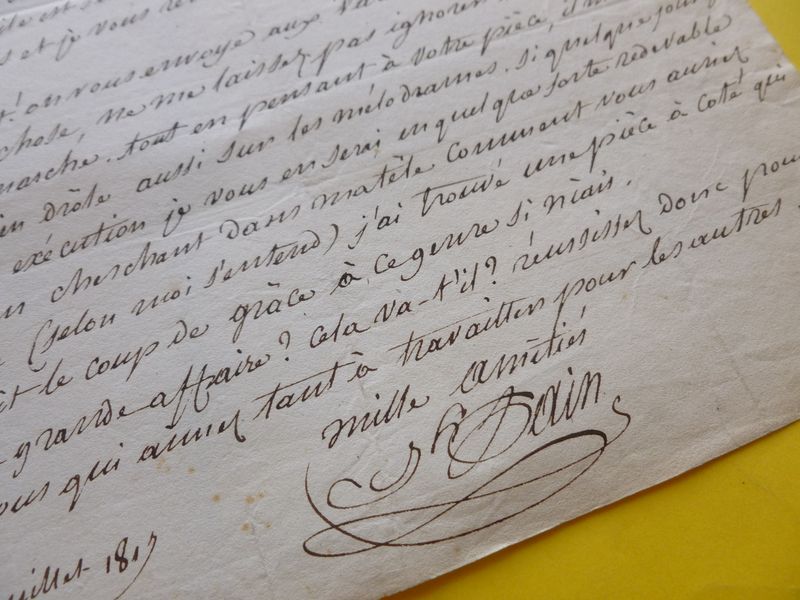 s et je vous re
t. on vous envoye aux Va
chose, ne me laissez pas ignorer
marche. tout en pensant à votre pièce, il m
in drôle aussi sur les mélodrames. si quelque jour j
exécution je vous en serai en quelque sorte redevable
n cherchant dans ma tête comment vous auriez
(selon moi s'entend) j'ai trouvé une pièce à coté qui
it le coup de grâce à ce genre si niais.
grande affaire? Cela và-t'il? réussissez donc pour
ous qui aimez tant à travailler pour les autres.
mille amitiés
Sain
uillet 1817